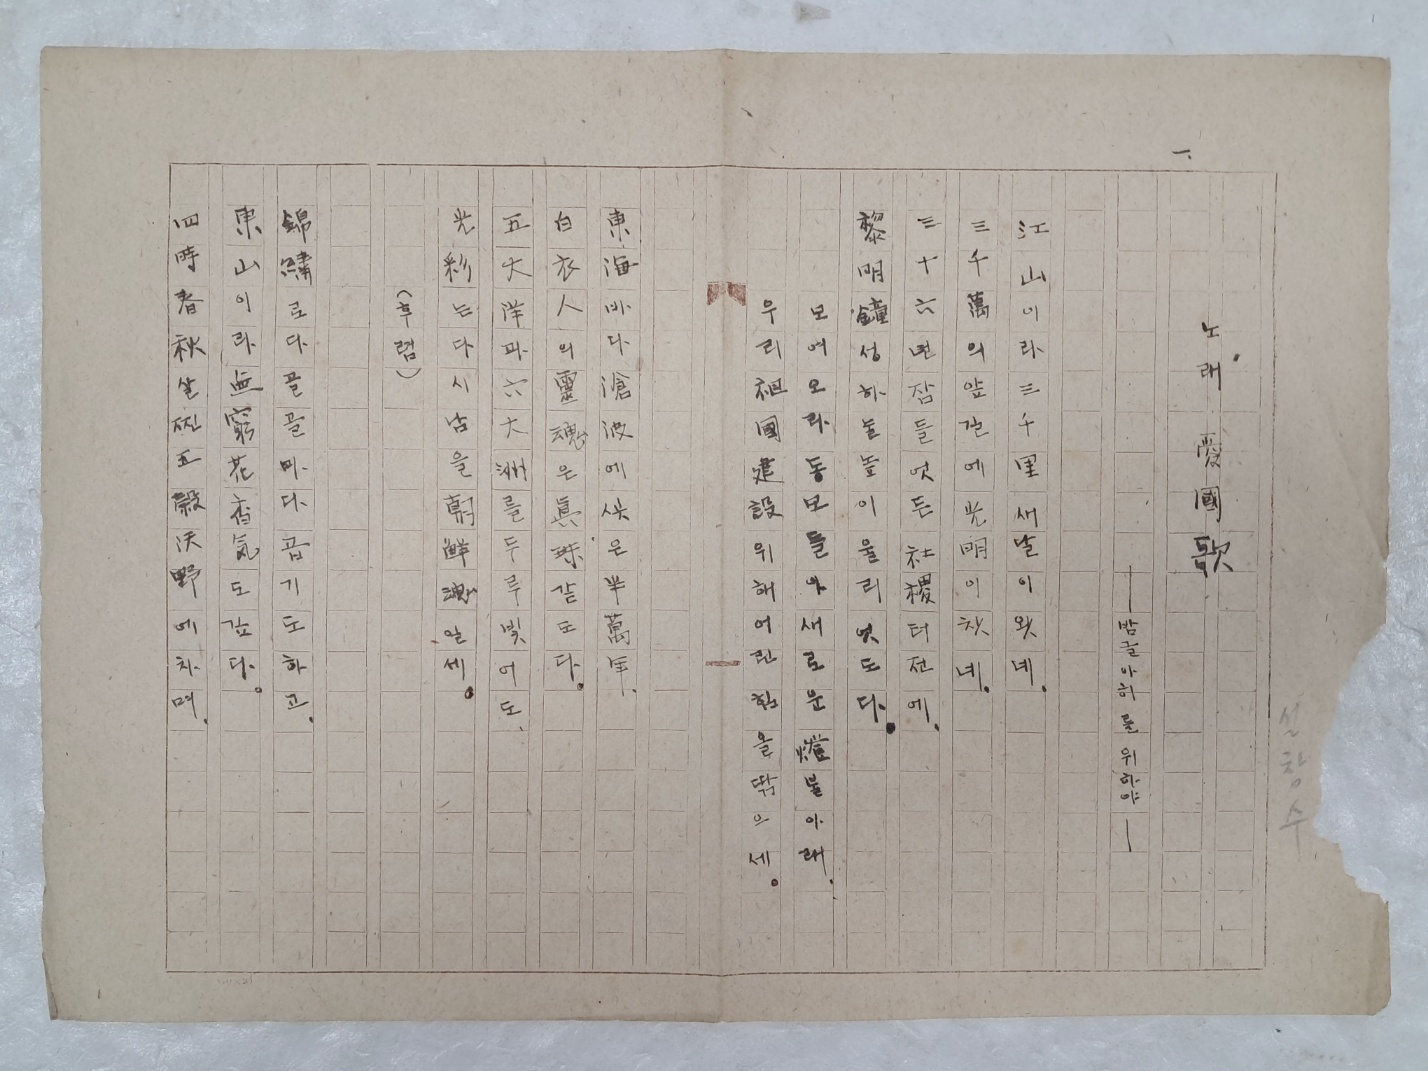 一.
노래 愛國歌
——밤글아히를 위하야——
江山이라 三千里 새날이 왓네.
三千萬의 앞길에 光明이 찻네.
三十六년 잠들엇든 社稷터전에.
黎明鐘성 하눌높이 울리엇도다.
모여오라 동모들아 새로운 燈불아래.
우리祖國建設 위해 어린힘을 닦으세.
東海바다 滄波에 싯은 半萬年.
白衣人의 靈魂은 眞珠같도다.
五大洋과 六大洲를 두루빛어도.
光彩는 다시 남을 朝鮮魂일세.
(후렴)
錦繡로다 골골마다 곱기도하고.
東山이라 無窮花 香氣도 깊다.
四時春秋 살찐 五穀 沃野에 차며.
설창수